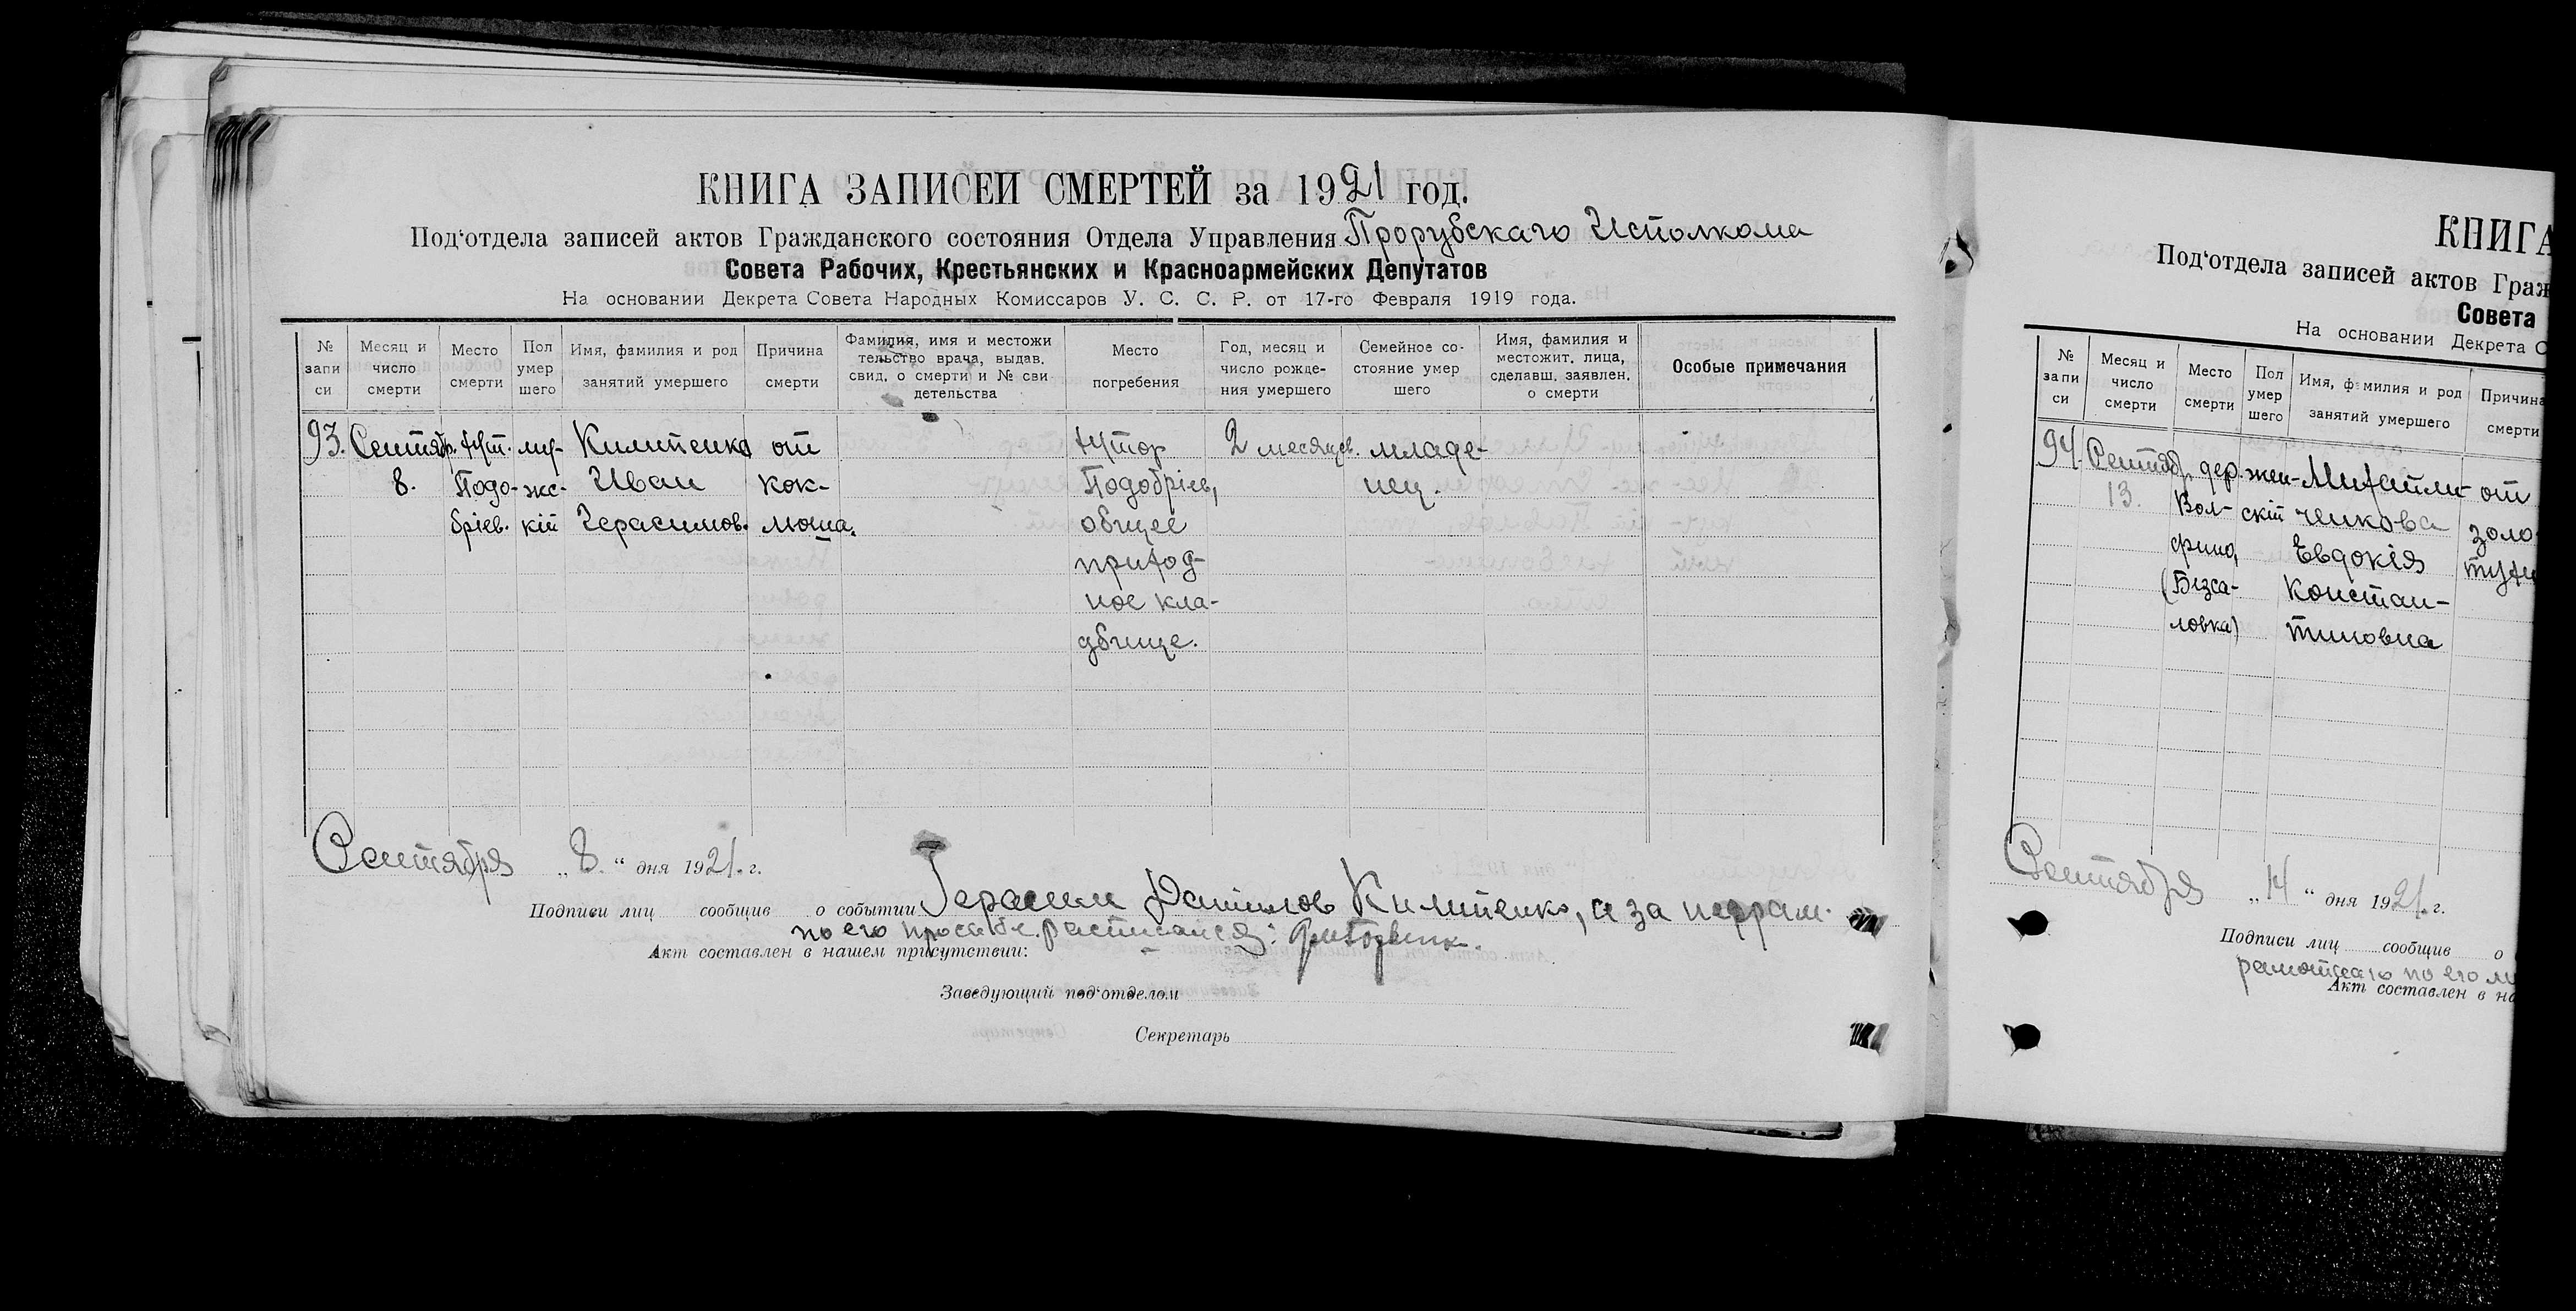 КНИГА ЗАПИСЕЙ СМЕРТЕЙ за 1921 год.
Под‘отдела записей актов Гражданского состояния Отдела Управления Прорубскаго Исполкома
Совета Рабочих, Крестьянских и Красноармейских Депутатов
На основании Декрета Совета Народных Комиссаров У. С. С. Р. от 17-го Февраля 1919 года.
№ запи си
Месяц и число смерти
Место смерти
Пол умер шего
Имя, фамилия и род занятий умершего
Причина смерти
Фамилия, имя и местожи тельство врача, выдав. свид. о смерти и № сви детельства
Место погребения
Год, месяц и число рожде- ния умершего
Семейное со- стояние умер шего
Имя, фамилия и местожит. лица, сделавш. заявлен. о смерти
Особые примечания
93. Сентябр. хут. му- Килипенко от хутор 2 месяцев. младе-
8. Подо- жс- Иван кок- Подобріев, нец.
бріев. кій Герасимов. люша. общее
приход-
ное кла-
дбище.
Сентября „ 8. “ дня 1921. г.
Подписи лиц сообщив о событии Герасим Данилов Килипенко, а за
по его просьбе расписался:
Акт составлен в нашем присутствии:
Заведующий под‘отделом
Секретарь
КНИГА
Под‘отдела записей актов Граж
Совета
На основании Декрета С
№ запи си
Месяц и число смерти
Место смерти
Пол умер шего
Имя, фамилия и род занятий умершего
Причина смерти
94. Сентяб. дер. жен- Михайли- от
13. Вол- скій ченкова золо-
фино, Евдокія тухи
(Бізса- Констан-
ловка) тиновна
Сентября „ 14 “ дня 1921. г.
Подписи лиц сообщив о
рамотнаго по его
Акт составлен в на